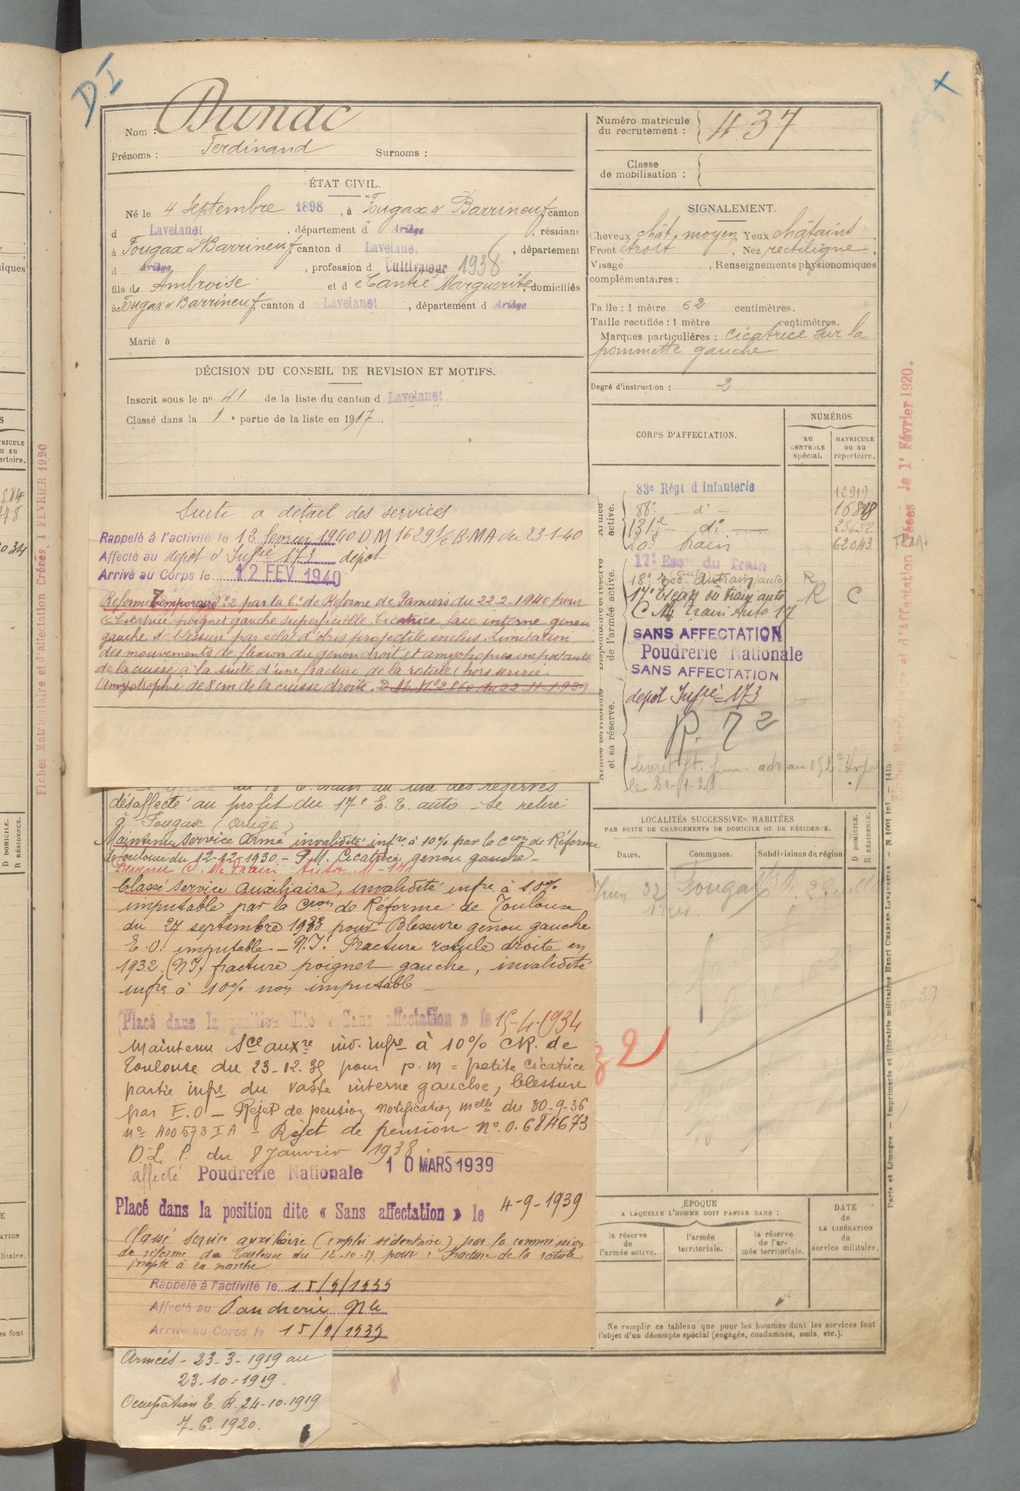 DI
Nom : Dunac
Prénoms : Ferdinand Surnoms :
ÉTAT CIVIL.
Né le 4 Septembre 1898, à Fougax & Barrineuf canton
d Lavelanet, département d Ariège, résidant
à Fougax & Barrineuf canton d Lavelanet, département
d Ariège, profession d Cultivateur 1938
fils de Ambroise et de Marguerite, domiciliés
à Fougax & Barrineuf, canton d Lavelanet, département d Ariège
Marié à
DÉCISION DU CONSEIL DE REVISION ET MOTIFS.
Inscrit sous le n° 41 de la liste du canton d Lavelanet
Classé dans la 1e partie de la liste en 1917.
Numéro matricule du recrutement : 437
Classe de mobilisation :
SIGNALEMENT.
Cheveux chât. moyen, Yeux châtains
Front étroit, Nez rectiligne,
Visage , Renseignements physionomiques
complémentaires :
Taille : 1 mètre 62 centimètres.
Taille rectifiée : 1 mètre centimètres.
Marques particulières : cicatrice sur la
pommette gauche
Degré d'instruction : 2
CORPS D'AFFECTATION.
NUMÉROS
AU CONTROLE spécial.
MATRICULE OU AU répertoire.
83e Régt d'infanterie 12919
88e — do —
131e — do —
20e train 62043
17e Esc du Train
18e Esc. auto du train auto R
17e Escon du train auto R C
C.M. Train Auto 17
SANS AFFECTATION
Poudrerie Nationale
SANS AFFECTATION
dépôt Infie 173
R. 72
Suite a détail des services
Rappelé à l'activité le 12 février 1940 D M 1629 1/2 B.MA du 23-1-40
Affecté au dépôt d'Infie 173 dépôt
Arrivé au Corps le 12 FEV 1940
Réformé Temporaire n°2 par la C° de Réforme de Pamiers du 22.2.1940 pour
cicatrice poignet gauche superficielle cicatrice face interne genou
gauche et blessure par éclat d'obus projectile inclus. Limitation
des mouvements de flexion du genou droit et amyotrophie importante
de la cuisse à la suite d'une fracture de la rotule hors service.
Amyotrophie de 8 cm de la cuisse droite.
désaffecté au profit du 17e E. E. auto — Se retire
à Fougax (Ariège)
Maintenu Service Armé invalidité infre à 10% par la Cion de Réforme
de Toulouse du 12-12-1930 - P.M. Cicatrice genou gauche -
Devenu C. M. Train Auto N-17
Classé Service Auxiliaire, invalidité infre à 10%
imputable par la Cion de Réforme de Toulouse
du 27 septembre 1933 pour Blessure genou gauche
E. O. imputable — N.I. Fracture rotule droite en
1932. (N.I.) fracture poignet gauche, invalidité
infre à 10% non imputable —
Placé dans la position dite « Sans affectation » le 15-4-1934
Maintenu Sce auxre inv. infre à 10% CR. de
Toulouse du 23-12.35 pour p.m = petite cicatrice
partie infre du vaste interne gauche, blessure
par E.O — Rejet de pension notification melle du 30-9-36
n° 400573 I A — Rejet de pension N°. 0.684673
D. L. P. du 8 Janvier 1938
affecté Poudrerie Nationale 10 MARS 1939
Placé dans la position dite « Sans affectation » le 4-9-1939
Classé service auxiliaire (emploi sédentaire) par la commission
de réforme de Toulouse du 12-10-39 pour : fracture de la rotule
inapte à la marche
Rappelé à l'activité le 15/9/1939
Affecté au Poudrerie Nle
Arrivé au Corps le 15/9/1939
Armées - 23-3-1919 au
23-10-1919.
Occupation E. R. 24-10-1919
7. 6. 1920.
LOCALITÉS SUCCESSIVES HABITÉES
PAR SUITE DE CHANGEMENTS DE DOMICILE OU DE RÉSIDENCE.
Dates. Communes. Subdivisions de région
D DOMICILE.
R RÉSIDENCE.
Fougax
ÉPOQUE
A LAQUELLE L'HOMME DOIT PASSER DANS :
la réserve de l'armée active.
l'armée territoriale.
la réserve de l'armée territoriale.
DATE de LA LIBÉRATION du service militaire.
Ne remplir ce tableau que pour les hommes dont les services font
l'objet d'un décompte spécial (engagés, condamnés, omis, etc.).
Fiches Matriculaire et d'affectation Créées 1 FÉVRIER 1920
Paris et Limoges. — Imprimerie et librairie militaires Henri CHARLES-LAVAUZELLE.